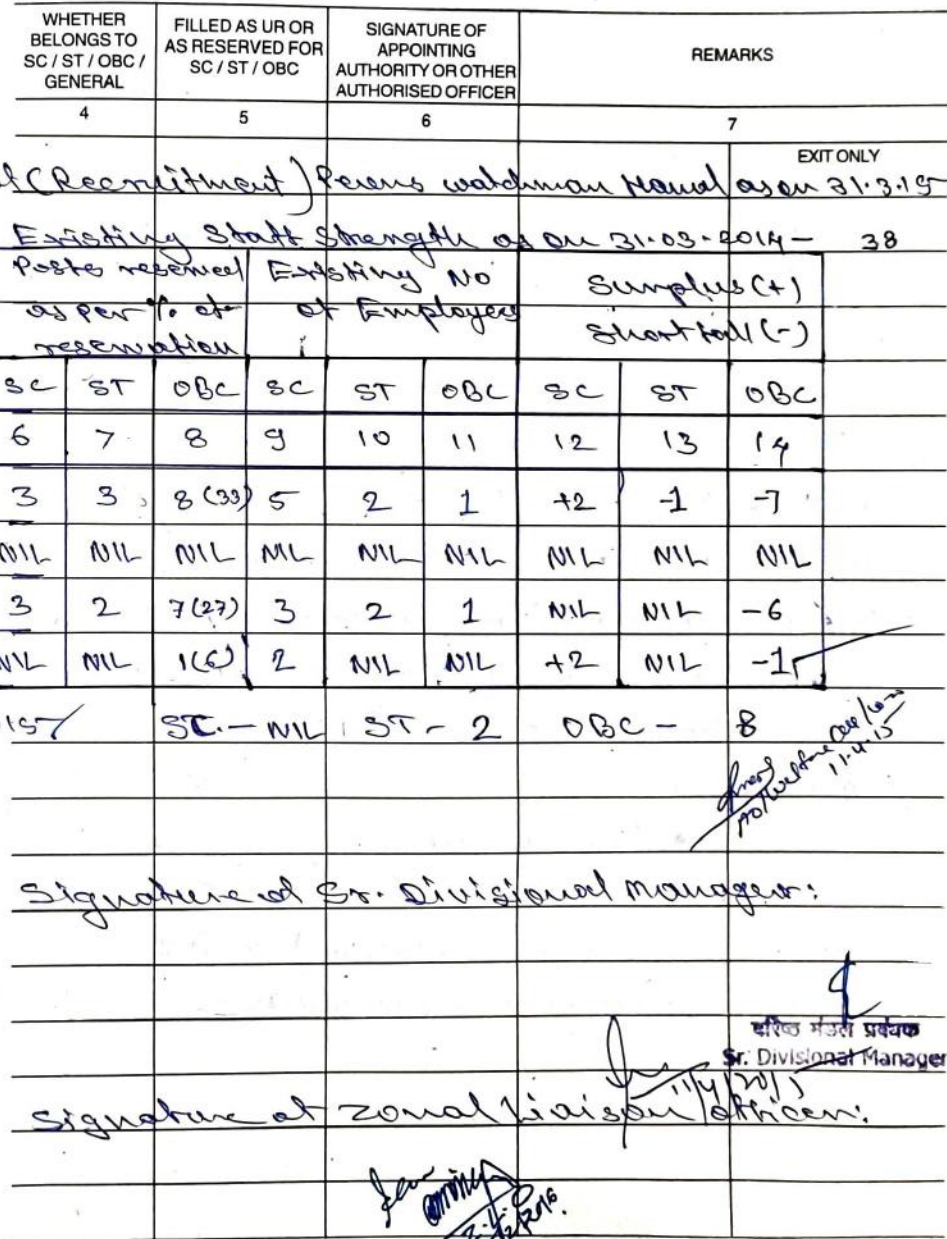 WHETHER BELONGS TO SC / ST / OBC / GENERAL | FILLED AS UR OR AS RESERVED FOR SC / ST / OBC | SIGNATURE OF APPOINTING AUTHORITY OR OTHER AUTHORISED OFFICER | REMARKS
4 | 5 | 6 | 7
EXIT ONLY
(Recruitment) watchman as on 31.3.15
Existing Staff Strength as on 31-03-2014 - 38
Posts reserved as per % of reservation | Existing No of Employees | Surplus (+) Short fall (-)
SC | ST | OBC | SC | ST | OBC | SC | ST | OBC
6 | 7 | 8 | 9 | 10 | 11 | 12 | 13 | 14
3 | 3 | 8 (33) | 5 | 2 | 1 | +2 | -1 | -7
NIL | NIL | NIL | NIL | NIL | NIL | NIL | NIL | NIL
3 | 2 | 7 (27) | 3 | 2 | 1 | NIL | NIL | -6
NIL | NIL | 1 (6) | 2 | NIL | NIL | +2 | NIL | -1
SC. - NIL | ST - 2 | OBC - 8
11.4.15
Signature of Sr. Divisional Manager:
वरिष्ठ मंडल प्रबंधक
Sr. Divisional Manager
Signature of Zonal Liaison Officer: